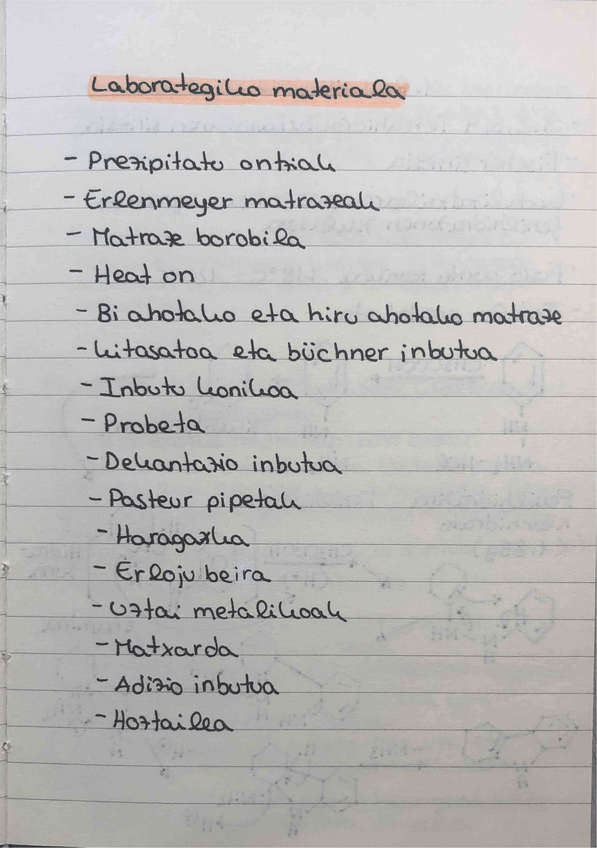 Laborategiko materiala
- Prezipitatu ontziak
- Erlenmeyer matrazeak
- Matraze borobila
- Heat on
- Bi ahotako eta hiru ahotako matraze
- kitasatoa eta büchner inbutua
- Inbutu konikoa
- Probeta
- Dekantazio inbutua
- Pasteur pipetak
- Haragazkia
- Erloju beira
- Uztai metalikoak
- Matxarda
- Adizio inbutua
- Hoztailea